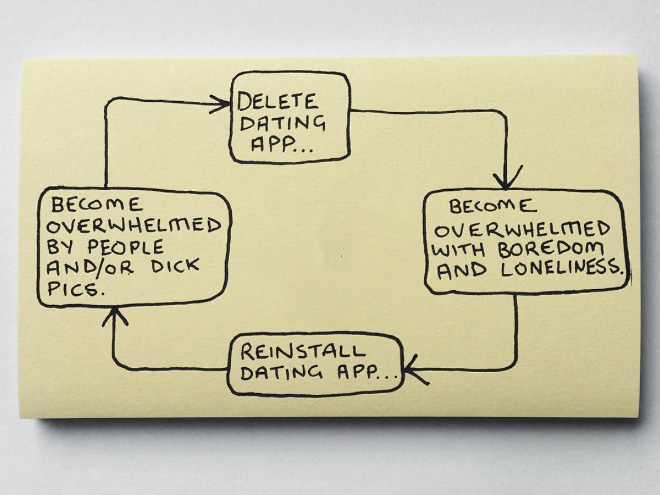 DELETE
DATING
APP...
BECOME
OVERWHELMED
WITH BOREDOM
AND LONELINESS.
REINSTALL
DATING APP...
BECOME
OVERWHELMED
BY PEOPLE
AND/OR DICK
PICS.